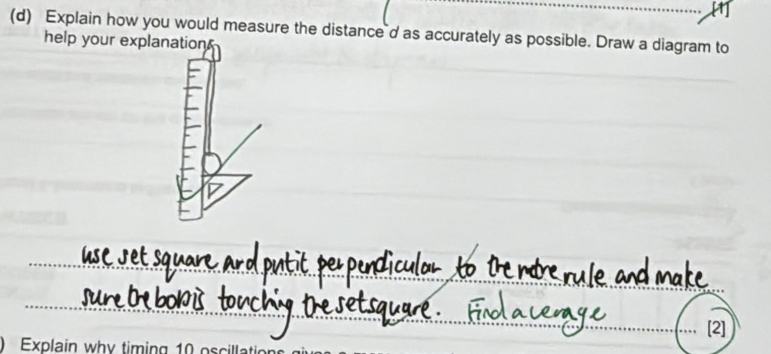 [1]
(d) Explain how you would measure the distance d as accurately as possible. Draw a diagram to
help your explanation.
use set square and put it perpendicular to the metre rule and make
sure the bob is touching the setsquare. Find average
[2]
) Explain why timing 10 oscillations gives a